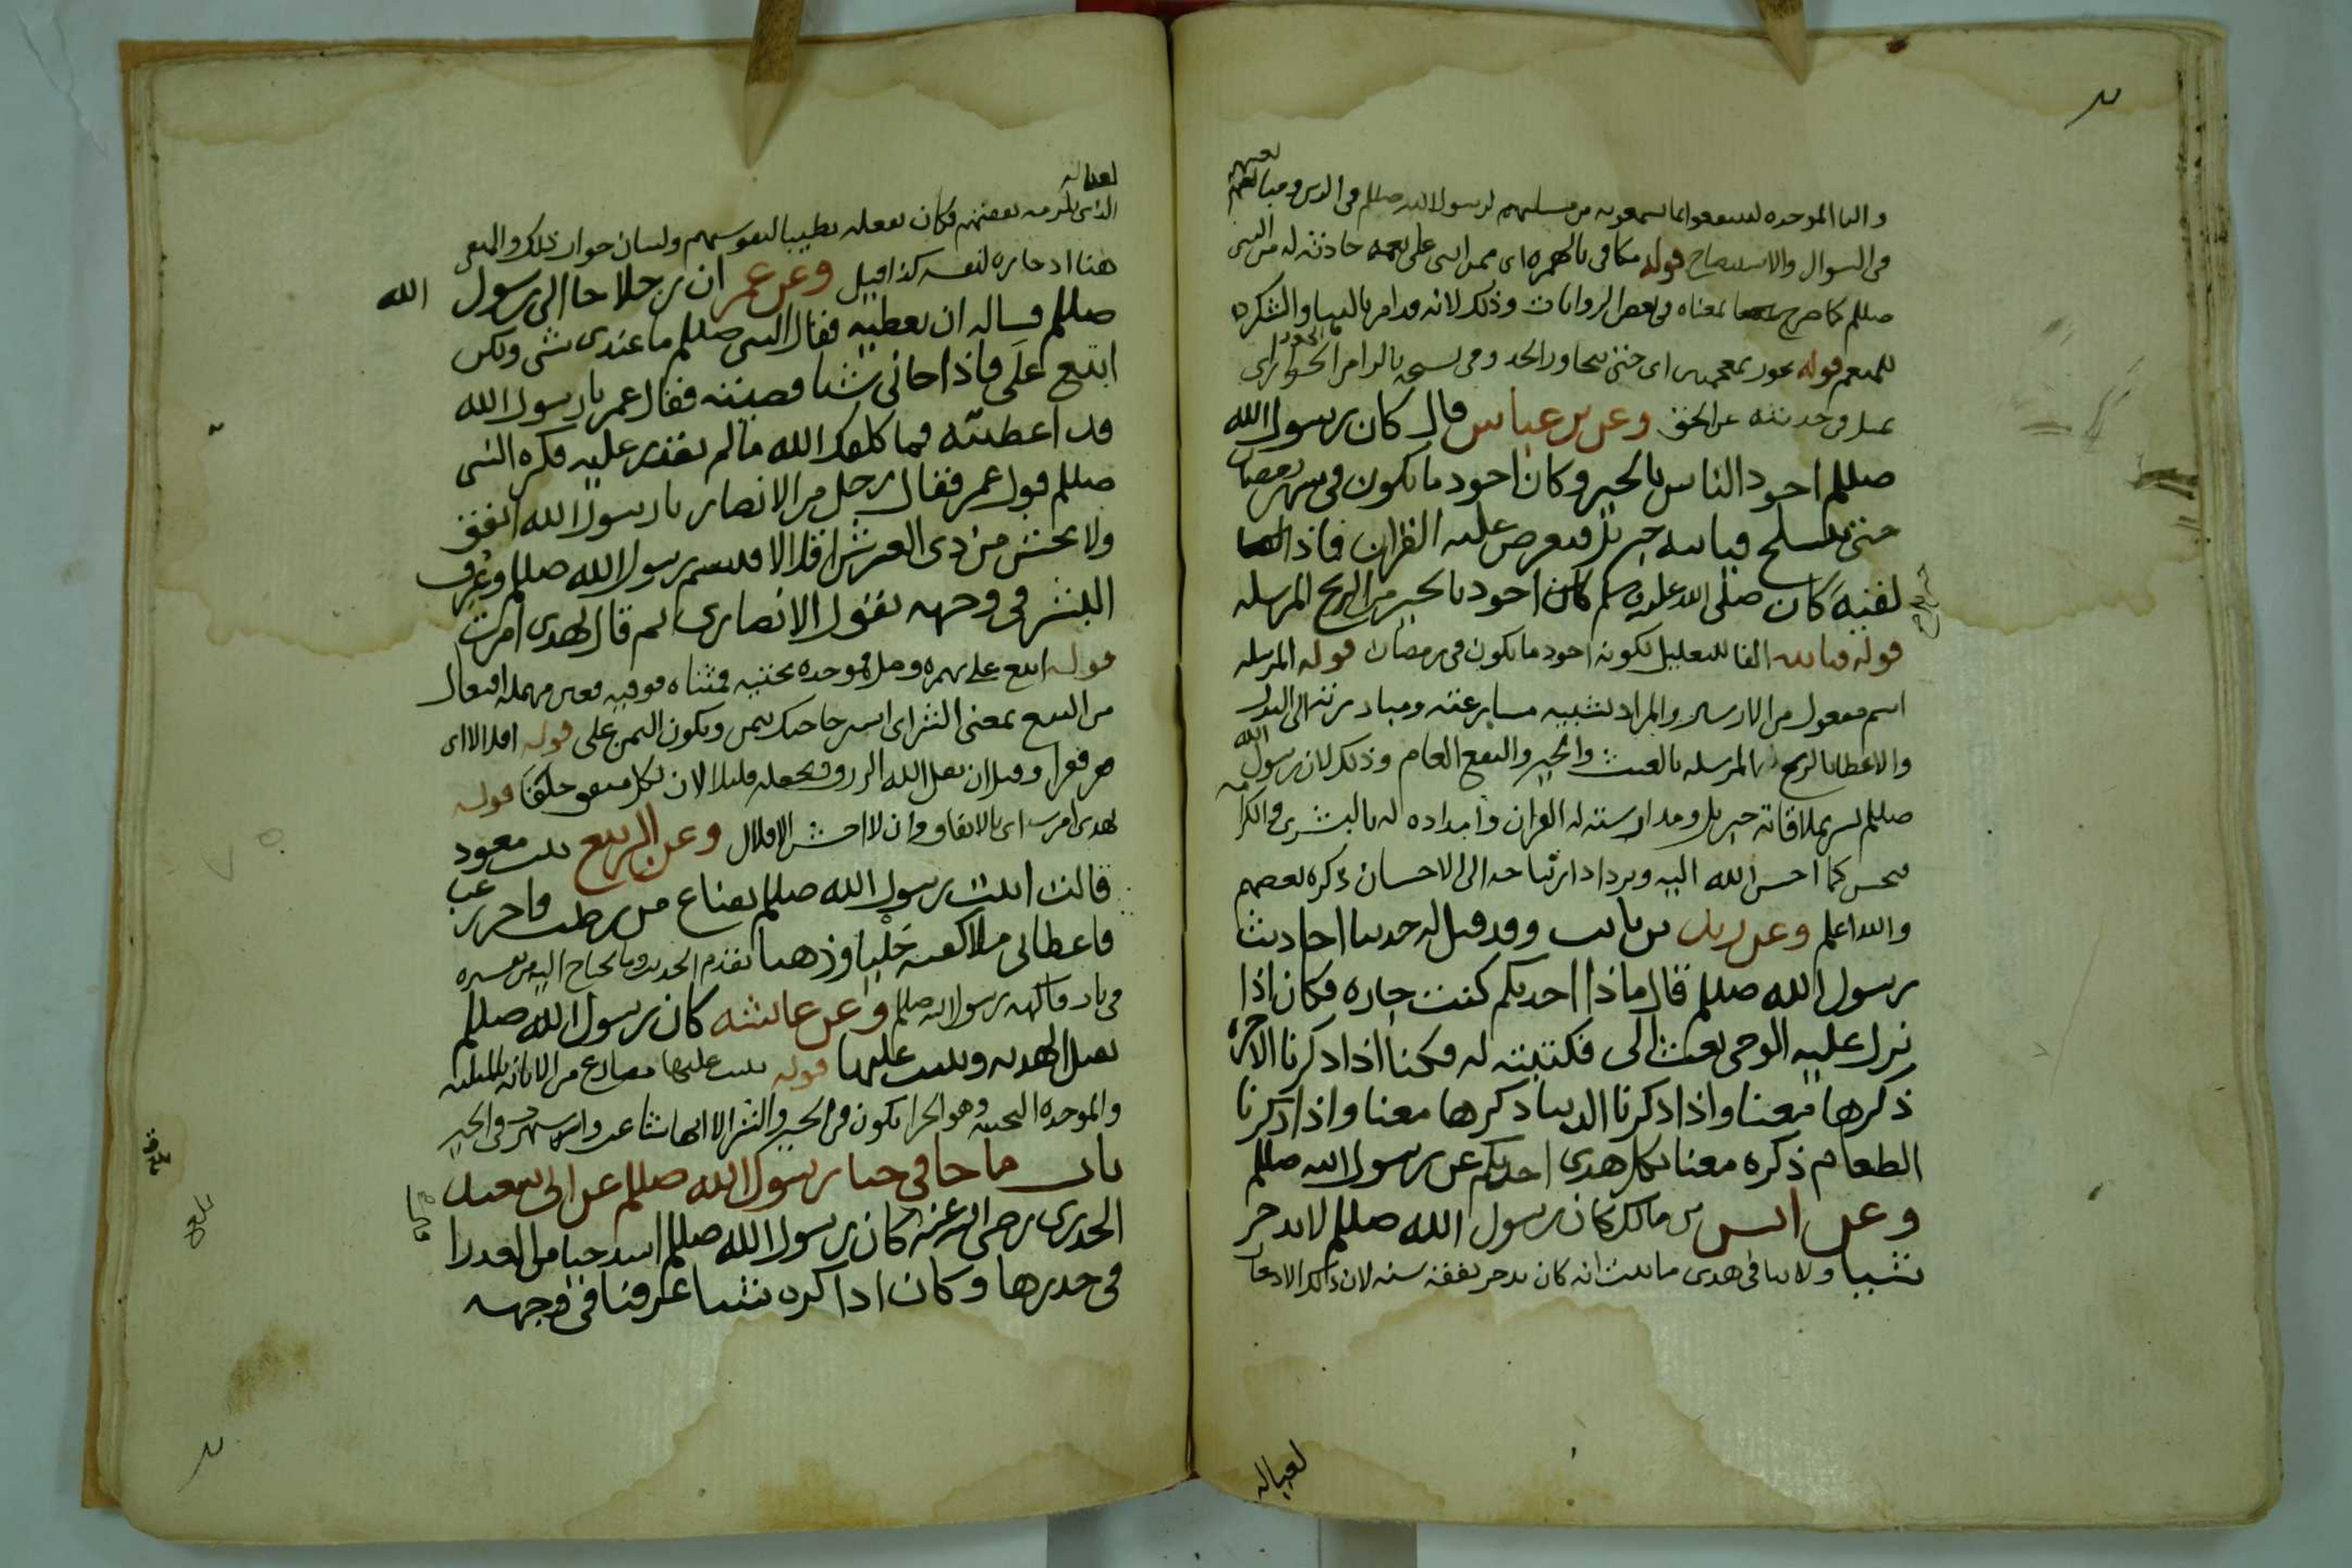 والبا الموحده لينتفعوا بما يسمعونه من مسايلهم لرسول الله صللم في الدين ومبالغتهم
في السوال والاستيضاح قوله مكافي بالهمزه اى ممن اثنى على نعمه حادثه له من النبي
صللم كما صرح بمعناه في بعض الروايات وذلك لانه قد امر بالثنا والشكر
للمنعم قوله يجوز بمعجمتين اى حتى يتجاوز الحد وفي نسخه بالرا من الجور اى
يميل في حديثه عن الحق وعن بن عباس قال كان رسول الله
صللم اجود الناس بالخير وكان اجود ما يكون في شهر رمضان
حتى ينسلخ فياتيه جبريل فيعرض عليه القران فاذا
لقيه كان صلى الله عليه وسلم اجود بالخير من الريح المرسله
قوله فياتيه الفا للتعليل لكونه اجود ما يكون في رمضان قوله المرسله
اسم مفعول من الارسال والمراد تشبيه مسارعته ومبادرته الى البذل
والاعطا بالريح المرسله بالغيث والخير والنفع العام وذلك لان رسول الله
صللم يسر بملاقاته جبريل ومدارسته له القران وامداده له بالبشرى والكرامه
فيحسن كما احسن الله اليه ويزداد ارتياحه الى الاحسان ذكره بعضهم
والله اعلم وعن زيد بن ثابت وقد قيل له حدثنا احاديث
رسول الله صللم قال ماذا احدثكم كنت جاره فكان اذا
نزل عليه الوحي بعث الى فكتبته له فكنا اذا ذكرنا الاخره
ذكرها معنا واذا ذكرنا الدنيا ذكرها معنا واذا ذكرنا
الطعام ذكره معنا بكل هذى احدثكم عن رسول الله صللم
وعن انس بن مالك كان رسول الله صللم لا يدخر
شيا ولا ينافي هذى ما ثبت انه كان يدخر نفقة سنه لان ذلك الادخار
لعياله
لعياله
الذين يلزمه نفقتهم فكان يفعله تطييبا لنفوسهم ولبيان جواز ذلك والمنفي
هنا ادخاره لنفسه كذا قيل وعن عمر ان رجلا جا الى رسول الله
صللم فساله ان يعطيه فقال النبي صللم ما عندى شى ولكن
ابتع على فاذا جانى شيا قضيته فقال عمر يا رسول الله
قد اعطيته فما كلفك الله ما لم تقدر عليه فكره النبي
صللم قول عمر فقال رجل من الانصار يا رسول الله انفق
ولا تخش من ذى العرش اقلالا فتبسم رسول الله صللم وعرف
البشر في وجهه لقول الانصارى ثم قال بهذى امرت
قوله ابتع على بهمزه وصل فموحده تحتيه فمثناه فوقيه فعين مهمله افتعال
من البيع بمعنى الشرا اى اشتر حاجتك بثمن ويكون الثمن على قوله اقلالا اى
صر فقرا وقيل ان يقل الله الرزق ويجعله قليلا لان لكل منفق خلفا قوله
بهدى امرت اى بالانفاق وان لا اخش الاقلال وعن الربيع بنت معوذ
قالت اتيت رسول الله صللم بقناع من رطب واجر زغب
فاعطانى ملا كفه حليا وذهبا تقدم الحديث وما يحتاج اليه من تفسيره
في باب فاكهه رسول الله صللم وعن عائشه كان رسول الله صللم
يقبل الهديه ويثيب عليها قوله يثيب عليها مضارع من الاثابه بالمثلثه
والموحده التحتيه وهو الجزا يكون في الخير والشر الا انها شاعت واشتهرت في الخير
باب ما جا في حيا رسول الله صللم عن ابى سعيد
الخدرى رضى الله عنه كان رسول الله صللم اشد حيا من العذرا
في خدرها وكان اذا كره شيا عرفنا في وجهه